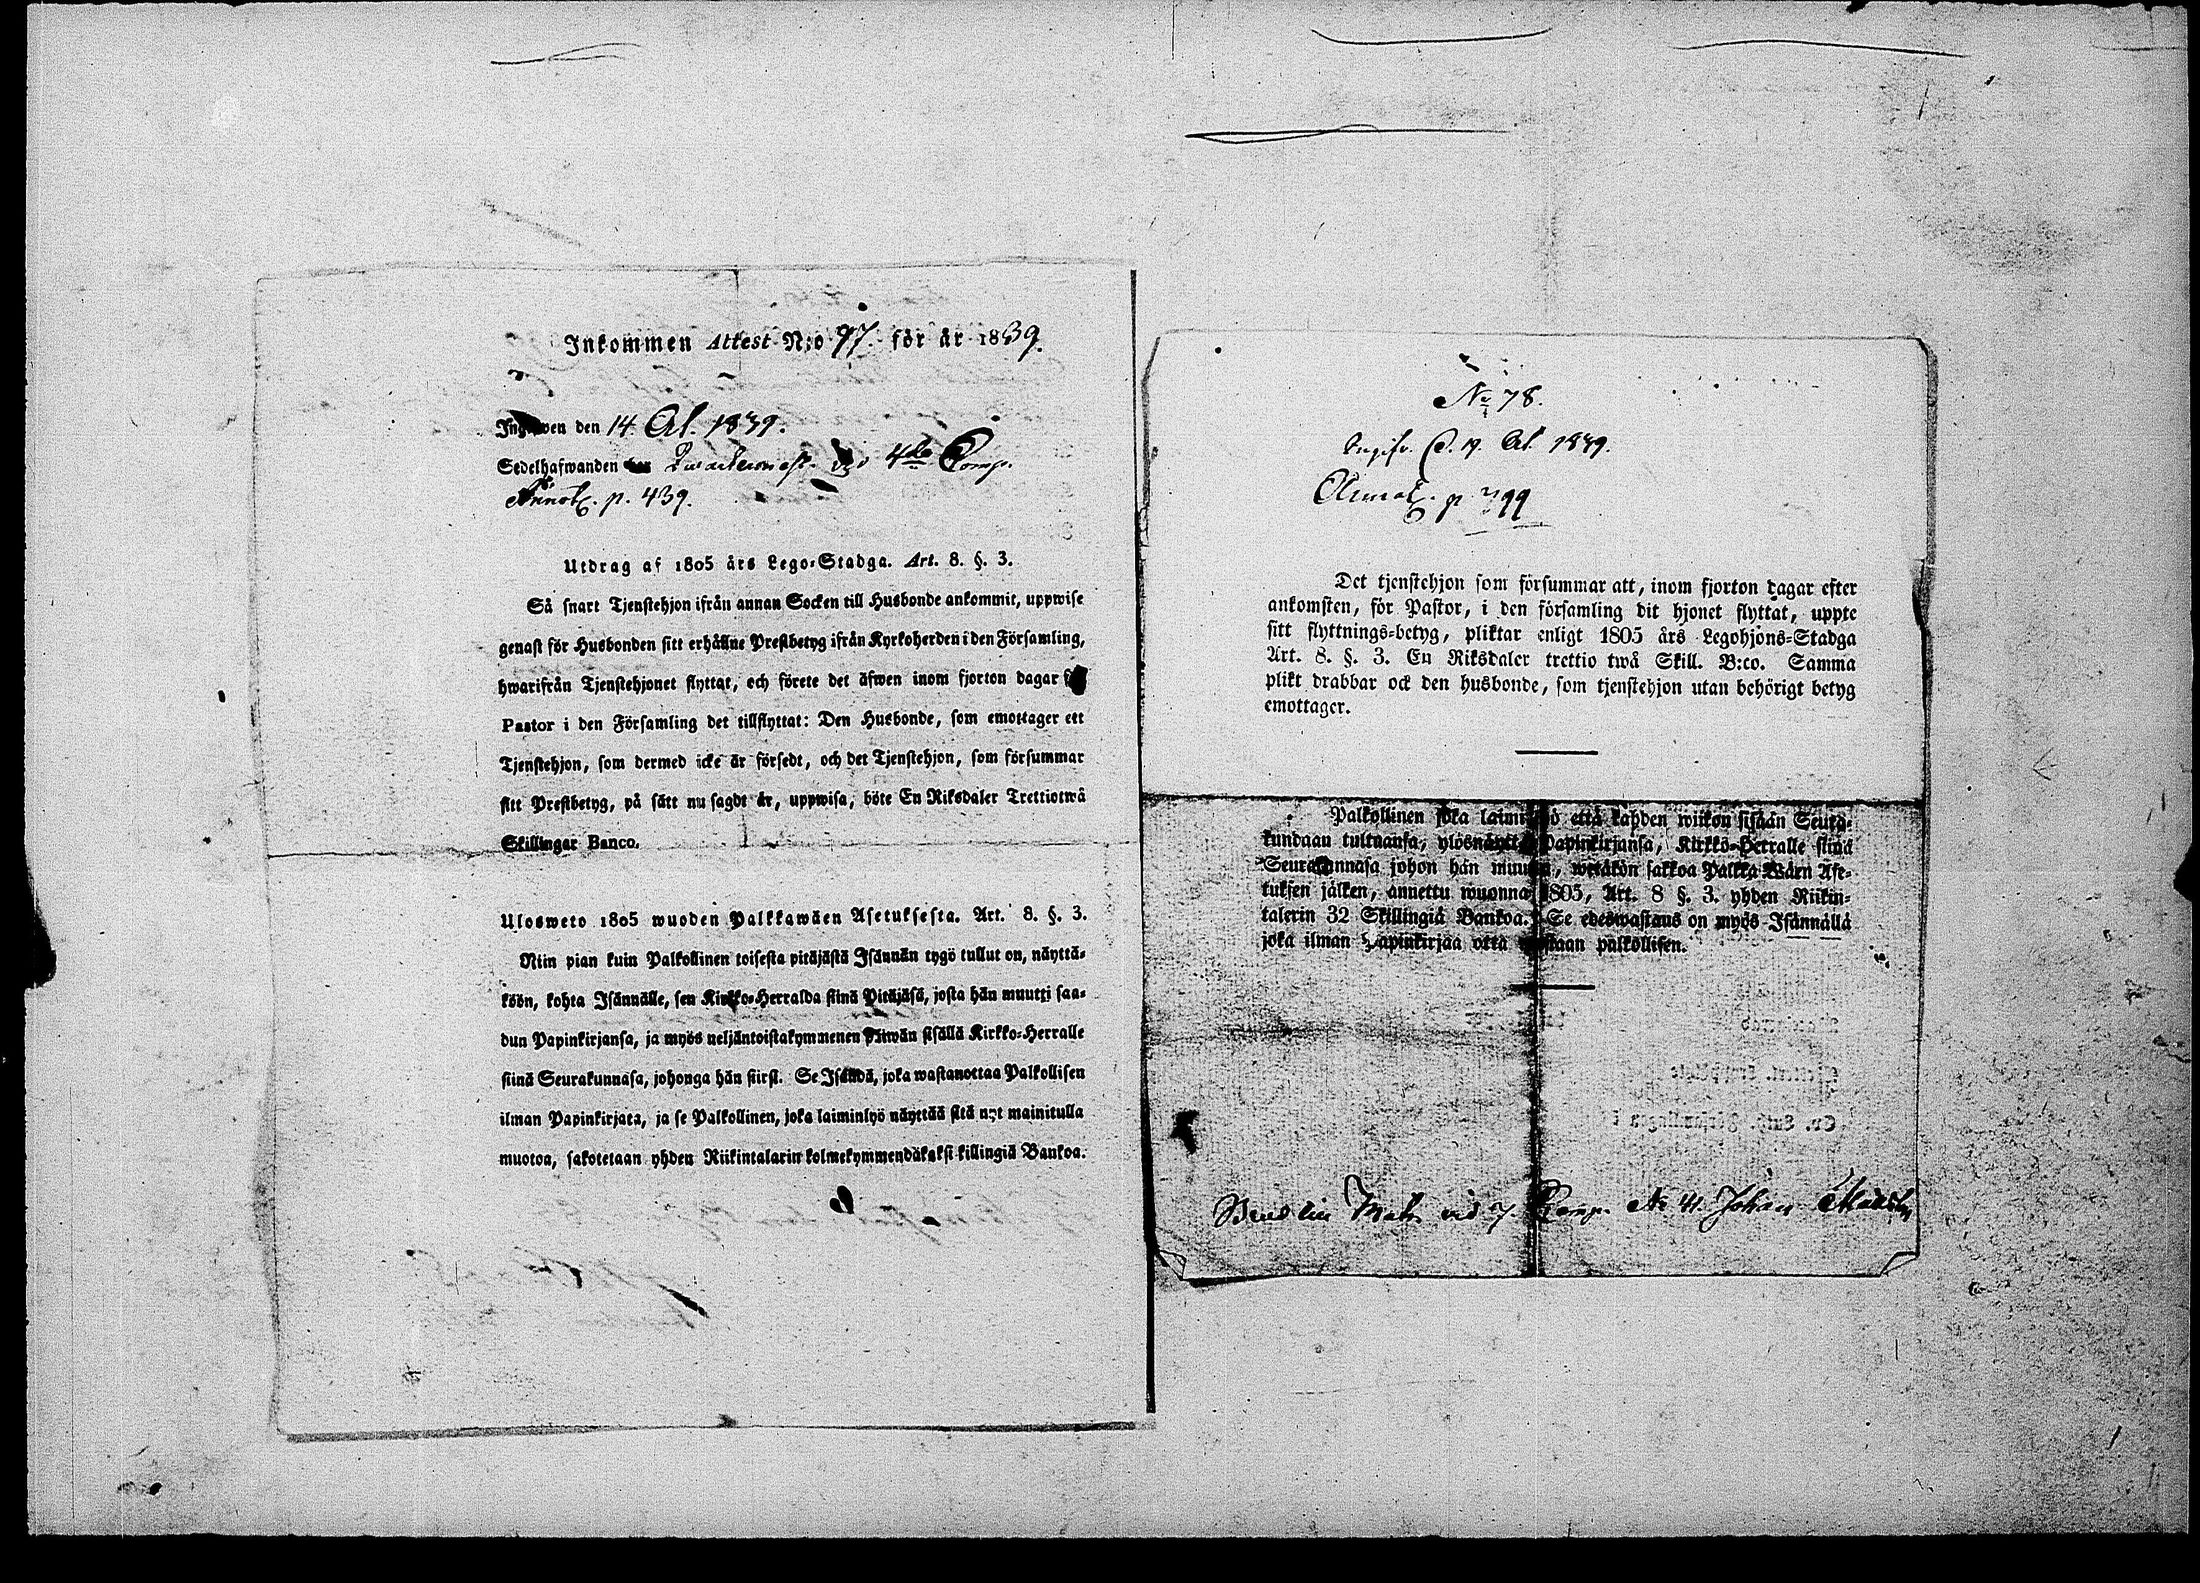 Inkommen Attest N:o 97. för år 1839.
den 14 1839.
Sedelhafwanden 4de Comp.
Annot. p. 439.
Utdrag af 1805 års Lego-Stadga. Art. 8. §. 3.
Så snart Tjenstehjon ifrån annan Socken till Husbonde ankommit, uppwise
genast för Husbonden sitt erhållne Prestbetyg ifrån Kyrkoherden i den Församling,
hwarifrån Tjenstehjonet flyttat, och förete det äfwen inom fjorton dagar
Pastor i den Församling det tillflyttat: Den Husbonde, som emottager ett
Tjenstehjon, som dermed icke är försedt, och det Tjenstehjon, som försummar
sitt Prestbetyg, på sätt nu sagdt är, uppwisa, böte En Riksdaler Trettiotwå
Skillingar Banco.
Ulosweto 1805 wuoden Palkkawäen Asetuksesta. Art. 8. §. 3.
Niin pian kuin Palkollinen toisesta pitäjästä Isännän tygö tullut on, näyttä-
köön, kohta Isännälle, sen Kirkko-Herralda siinä Pitäjäsä, josta hän muutti saa-
dun Papinkirjansa, ja myös neljäntoistakymmenen Päiwän sisällä Kirkko-Herralle
siinä Seurakunnasa, johonga hän siirsi. Se Isändä, joka wastanottaa Palkollisen
ilman Papinkirjata, ja se Palkollinen, joka laiminlyö näyttää sitä nyt mainitulla
muotoa, sakotetaan yhden Riikintalarin kolmekymmendäkaksi killingiä Bankoa.
No 78.
1839.
Annot. p 399
Det tjenstehjon som försummar att, inom fjorton dagar efter
ankomsten, för Pastor, i den församling dit hjonet flyttat, uppte
sitt flyttnings-betyg, pliktar enligt 1805 års Legohjons-Stadga
Art. 8. §. 3. En Riksdaler trettio twå Skill. B:co. Samma
plikt drabbar ock den husbonde, som tjenstehjon utan behörigt betyg
emottager.
Palkollinen joka että kahden wiikon sisään Seura-
kundaan tultuansa, Papinkirjansa, Kirkko-Herralle siinä
Seurakunnasa johon hän wetäkön sakkoa Palkka-Wäen Ase-
tuksen jälken, annettu wuonna 1805, Art. 8 §. 3. yhden Riikin-
talerin 32 Skillingiä Bankoa. Se edeswastaus on myös Isännällä
joka ilman Papinkirjaa otta wastaan palkollisen.
vid 7 Comp. No 41. Johan